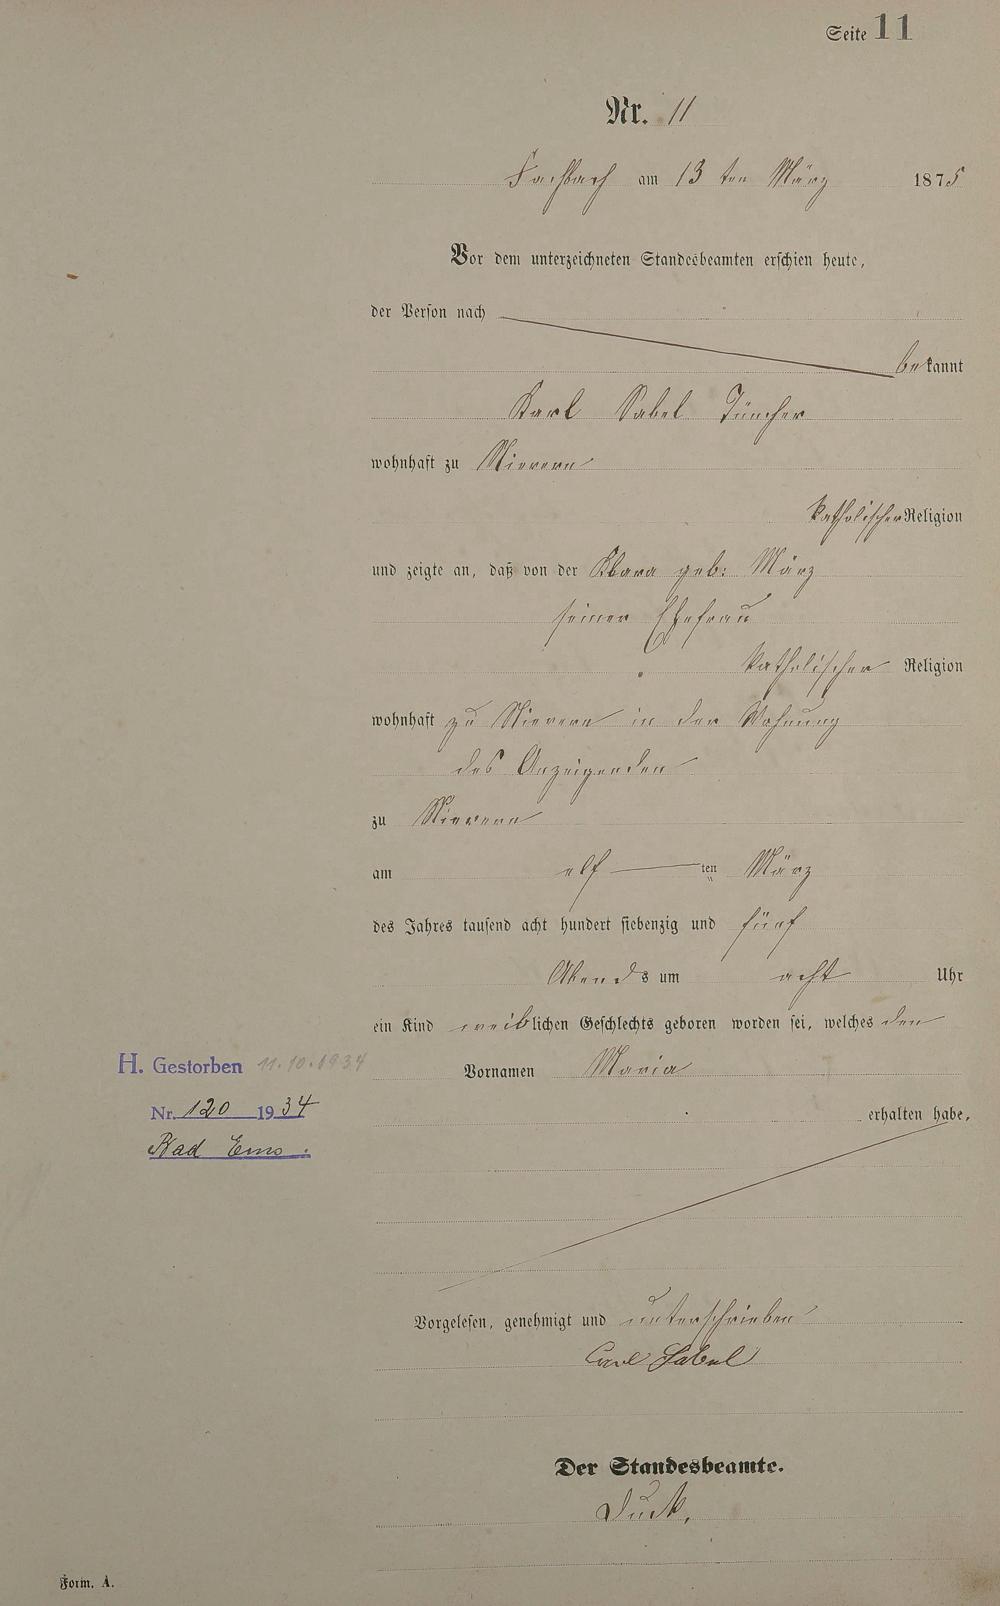 Seite 11
Nr. 11
Fachbach am 13 ten März 1875
Vor dem unterzeichneten Standesbeamten erschien heute,
der Person nach
bekannt
Karl Sabel Tüncher
wohnhaft zu Nievern
katholischer Religion
und zeigte an, daß von der Klara geb: März
seiner Ehefrau
katholischer Religion
wohnhaft zu Nievern in der Wohnung
des Anzeigenden
zu Nievern
am elf ten März
des Jahres tausend acht hundert siebenzig und fünf
Abends um acht Uhr
ein Kind weiblichen Geschlechts geboren worden sei, welches den
H. Gestorben 11.10.1934
Vornamen Maria
Nr. 120 1934
erhalten habe,
Bad Ems.
Vorgelesen, genehmigt und unterschrieben
Carl Sabel
Der Standesbeamte.
Form. A.